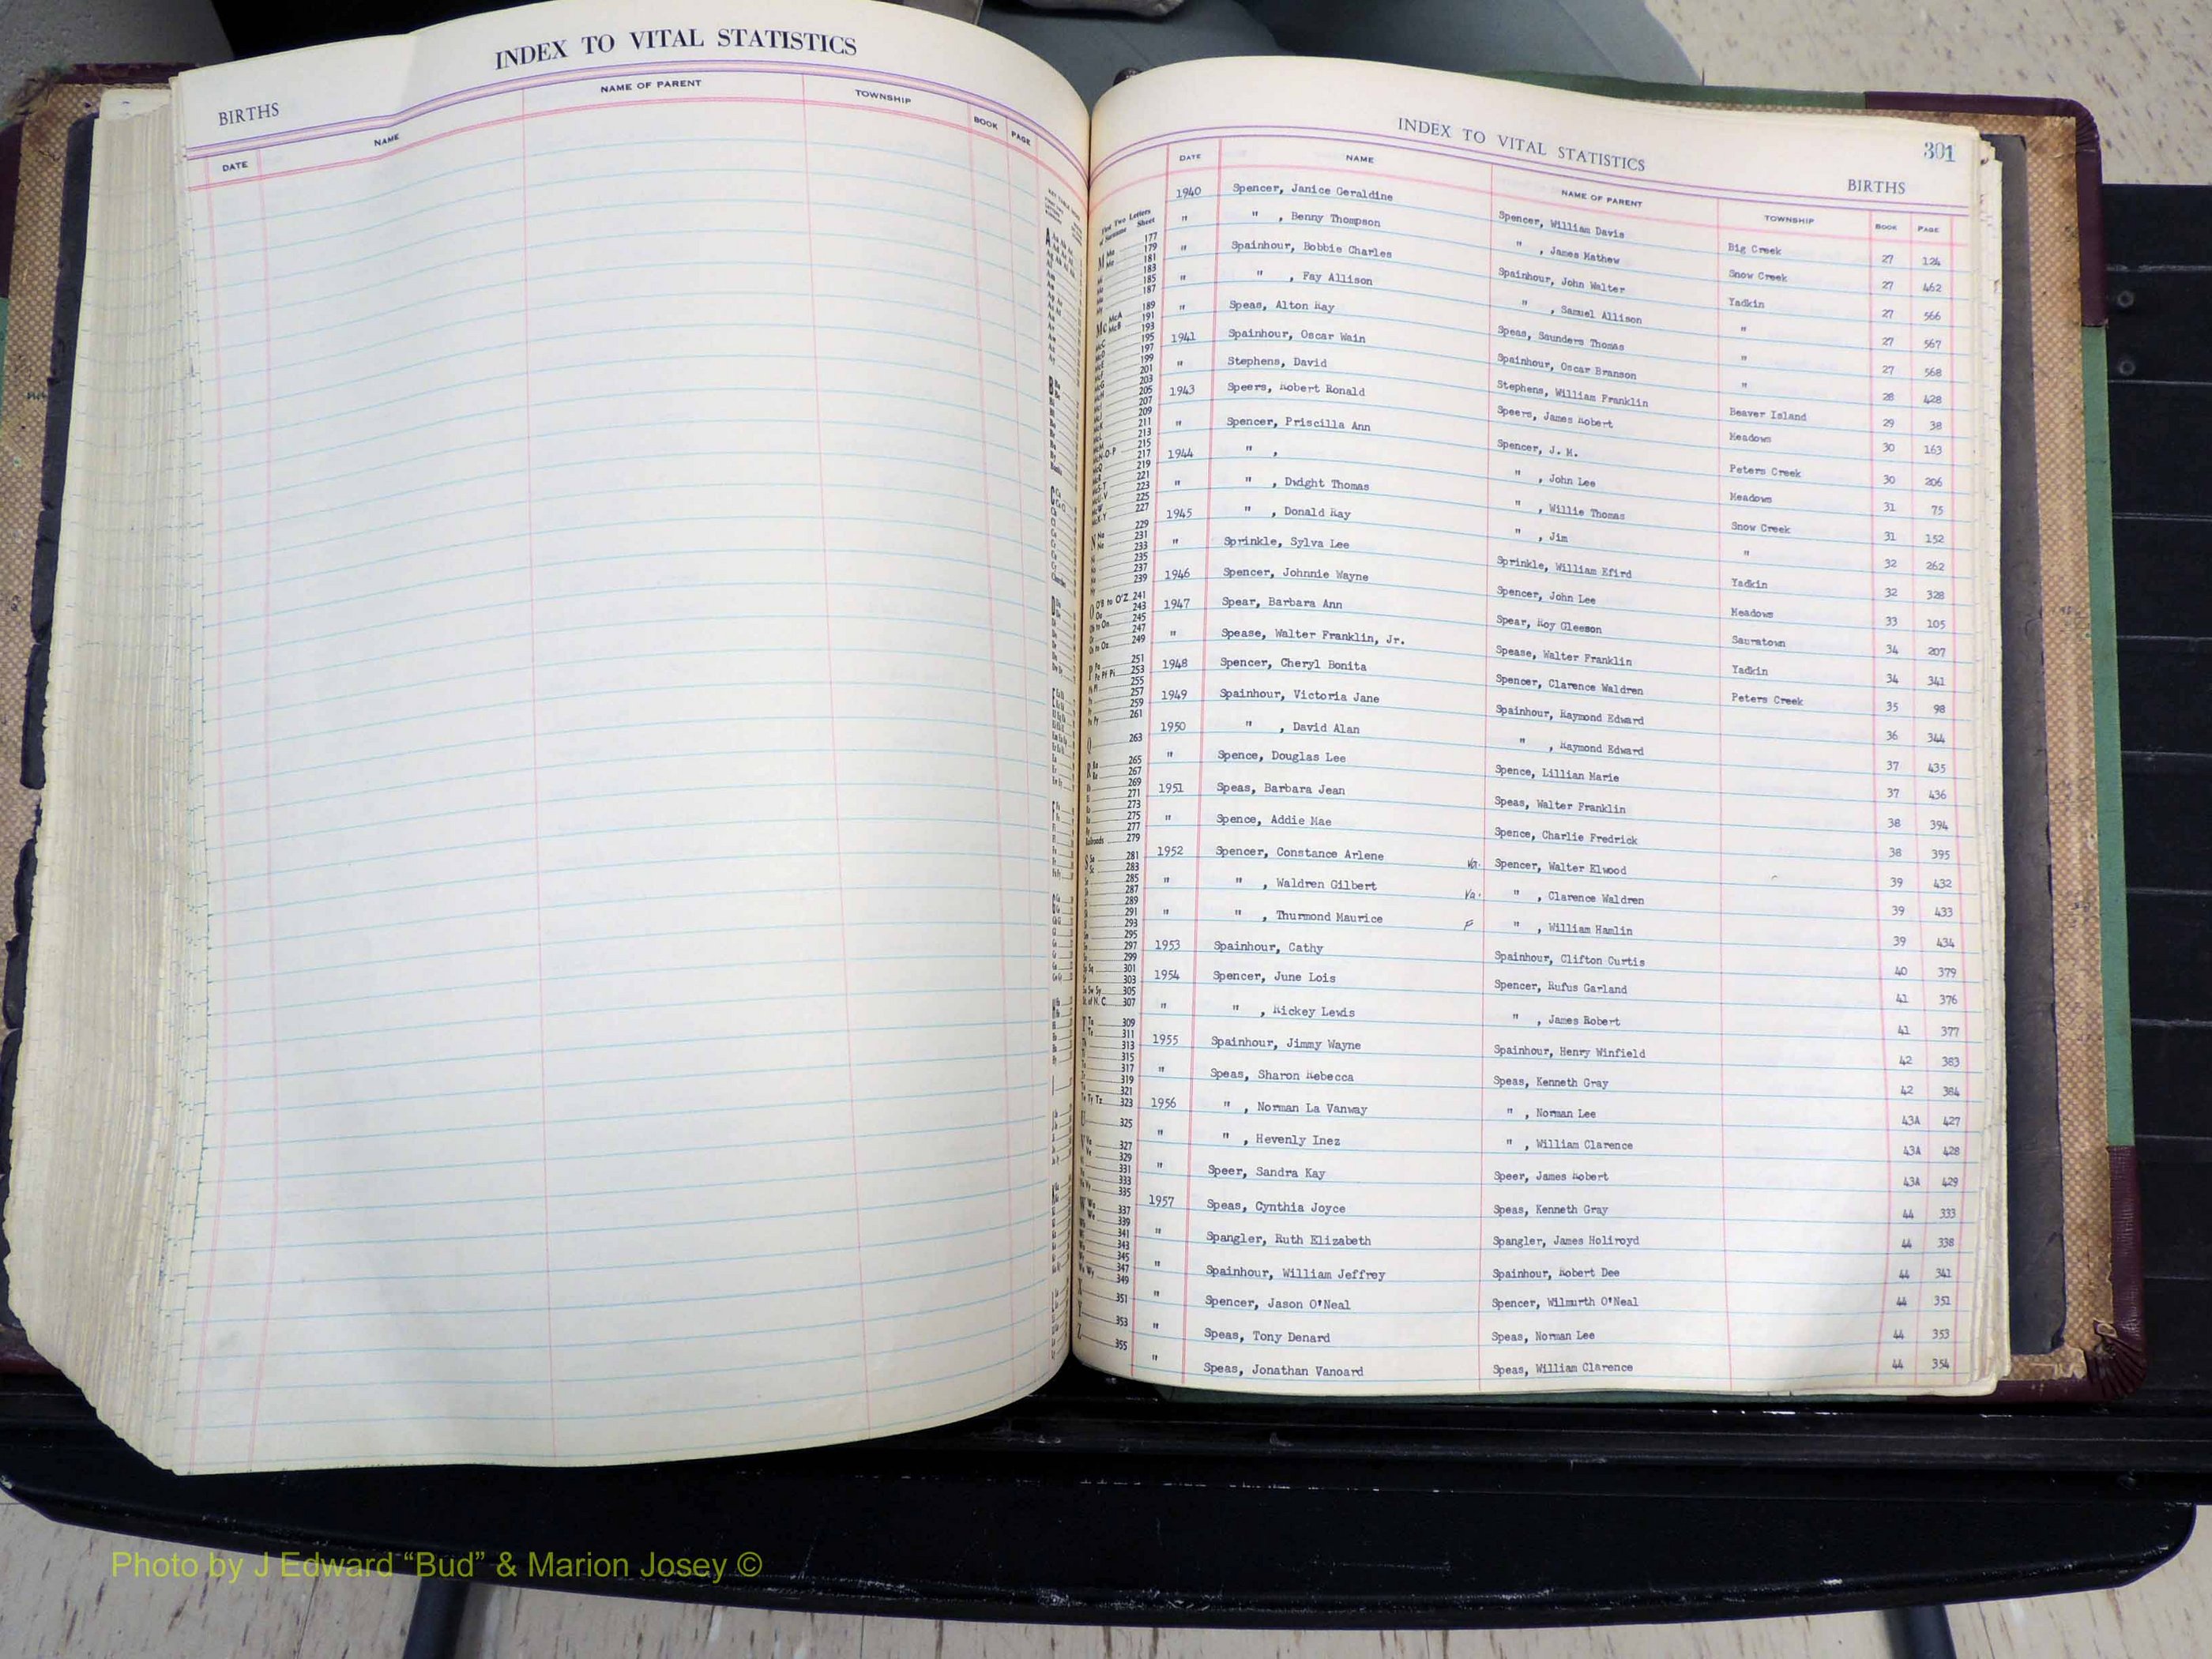 INDEX TO VITAL STATISTICS
BIRTHS
DATE NAME NAME OF PARENT TOWNSHIP BOOK PAGE
INDEX TO VITAL STATISTICS 301
BIRTHS
DATE NAME NAME OF PARENT TOWNSHIP BOOK PAGE
1940 Spencer, Janice Geraldine Spencer, William Davis Big Creek 27 124
" " , Benny Thompson " , James Mathew Snow Creek 27 462
" Spainhour, Bobbie Charles Spainhour, John Walter Yadkin 27 566
" " , Fay Allison " , Samuel Allison " 27 567
" Speas, Alton Ray Speas, Saunders Thomas " 27 568
1941 Spainhour, Oscar Wain Spainhour, Oscar Branson " 28 428
" Stephens, David Stephens, William Franklin Beaver Island 29 38
1943 Speers, Robert Ronald Speers, James Robert Meadows 30 163
" Spencer, Priscilla Ann Spencer, J. M. Peters Creek 30 206
1944 " , " , John Lee Meadows 31 75
" " , Dwight Thomas " , Willie Thomas Snow Creek 31 152
1945 " , Donald Ray " , Jim " 32 262
" Sprinkle, Sylva Lee Sprinkle, William Efird Yadkin 32 328
1946 Spencer, Johnnie Wayne Spencer, John Lee Meadows 33 105
1947 Spear, Barbara Ann Spear, Roy Gleeson Sauratown 34 207
" Spease, Walter Franklin, Jr. Spease, Walter Franklin Yadkin 34 341
1948 Spencer, Cheryl Bonita Spencer, Clarence Waldren Peters Creek 35 98
1949 Spainhour, Victoria Jane Spainhour, Raymond Edward 36 344
1950 " , David Alan " , Raymond Edward 37 435
" Spence, Douglas Lee Spence, Lillian Marie 37 436
1951 Speas, Barbara Jean Speas, Walter Franklin 38 394
" Spence, Addie Mae Spence, Charlie Fredrick 38 395
1952 Spencer, Constance Arlene Va. Spencer, Walter Elwood 39 432
" " , Waldren Gilbert Va. " , Clarence Waldren 39 433
" " , Thurmond Maurice F " , William Hamlin 39 434
1953 Spainhour, Cathy Spainhour, Clifton Curtis 40 379
1954 Spencer, June Lois Spencer, Rufus Garland 41 376
" " , Rickey Lewis " , James Robert 41 377
1955 Spainhour, Jimmy Wayne Spainhour, Henry Winfield 42 383
" Speas, Sharon Rebecca Speas, Kenneth Gray 42 384
1956 " , Norman La Vanway " , Norman Lee 43A 427
" " , Hevenly Inez " , William Clarence 43A 428
" Speer, Sandra Kay Speer, James Robert 43A 429
1957 Speas, Cynthia Joyce Speas, Kenneth Gray 44 333
" Spangler, Ruth Elizabeth Spangler, James Holiroyd 44 338
" Spainhour, William Jeffrey Spainhour, Robert Dee 44 341
" Spencer, Jason O'Neal Spencer, Wilmurth O'Neal 44 351
" Speas, Tony Denard Speas, Norman Lee 44 353
" Speas, Jonathan Vanoard Speas, William Clarence 44 354
First Two Letters
of Surname Sheet
177
179
181
183
185
187
189
191
193
195
197
199
201
203
205
207
209
211
213
215
217
219
221
223
225
227
229
231
233
235
237
239
O'B to O'Z 241
243
245
247
249
251
253
255
257
259
261
263
265
267
269
271
273
275
277
279
281
283
285
287
289
291
293
295
297
299
301
303
305
307
309
311
313
315
317
319
321
323
325
327
329
331
333
335
337
339
341
343
345
347
349
351
353
355
Photo by J Edward “Bud” & Marion Josey ©